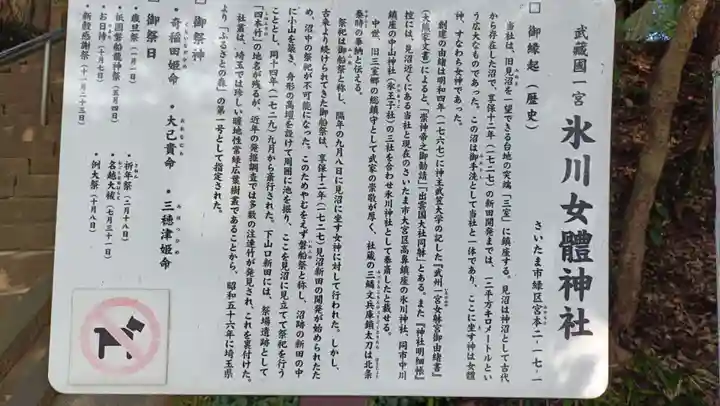 武蔵國一宮
氷川女體神社
さいたま市緑区宮本二-一七-一
□ 御縁起(歴史)
当社は、旧見沼を一望できる台地の突端「三室」に鎮座する。見沼は神沼として古代
から存在した沼で、享保十二年(一七二七)の新田開発までは、一二平方キロメートルとい
う広大なものであった。この沼は御手洗として当社と一体であり、ここに坐す神は女體
神、すなわち女神であった。
創建の由緒は明和四年(一七六七)に神主武笠大学の記した『武州一宮女躰宮御由緒書』
(大熊家文書)によると、「崇神帝之御勧請」「出雲国大社同躰」とある。また『神社明細帳』
控には、見沼近くにある当社と現在のさいたま市大宮区高鼻鎮座の氷川神社、同市中川
鎮座の中山神社(氷王子社)の三社を合わせ氷川神社として奉斎したと載せる。
中世、旧三室郷の総鎮守として武家の崇敬が厚く、社蔵の三鱗文兵庫鎖太刀は北条
泰時の奉納と伝える。
祭祀は御船祭と称し、隔年の九月八日に見沼に坐す女神に対して行われた。しかし、
古来より続けられてきた御船祭は、享保十二年(一七二七)見沼新田の開発が始められたた
め、沼中の祭祀が不可能になった。このためやむをえず磐船祭と称し、沼跡の新田の中
に小山を築き、舟形の高壇を設けて周囲に池を掘り、ここを見沼に見立てて祭祀を行う
こととし、同十四年(一七二九)九月から斎行された。下山口新田には、祭場遺跡として
「四本竹」の地名が残るが、近年の発掘調査では多数の注連竹が発見され、これを裏付けた。
社叢は、埼玉では珍しい暖地性常緑広葉樹叢であることから、昭和五十六年に埼玉県
より「ふるさとの森」の第一号として指定された。
□ 御祭神
・奇稲田姫命
くしいなだひめのみこと
・大己貴命
おおなむち
・三穂津姫命
みほつひめ
□ 御祭日
・歳旦祭(一月一日)
・祈年祭(二月十八日)
・祇園磐船龍神祭(五月四日)
・名越大祓(七月三十一日)
・お日待(十月七日)
・例大祭(十月八日)
・新穀感謝祭(十一月二十三日)